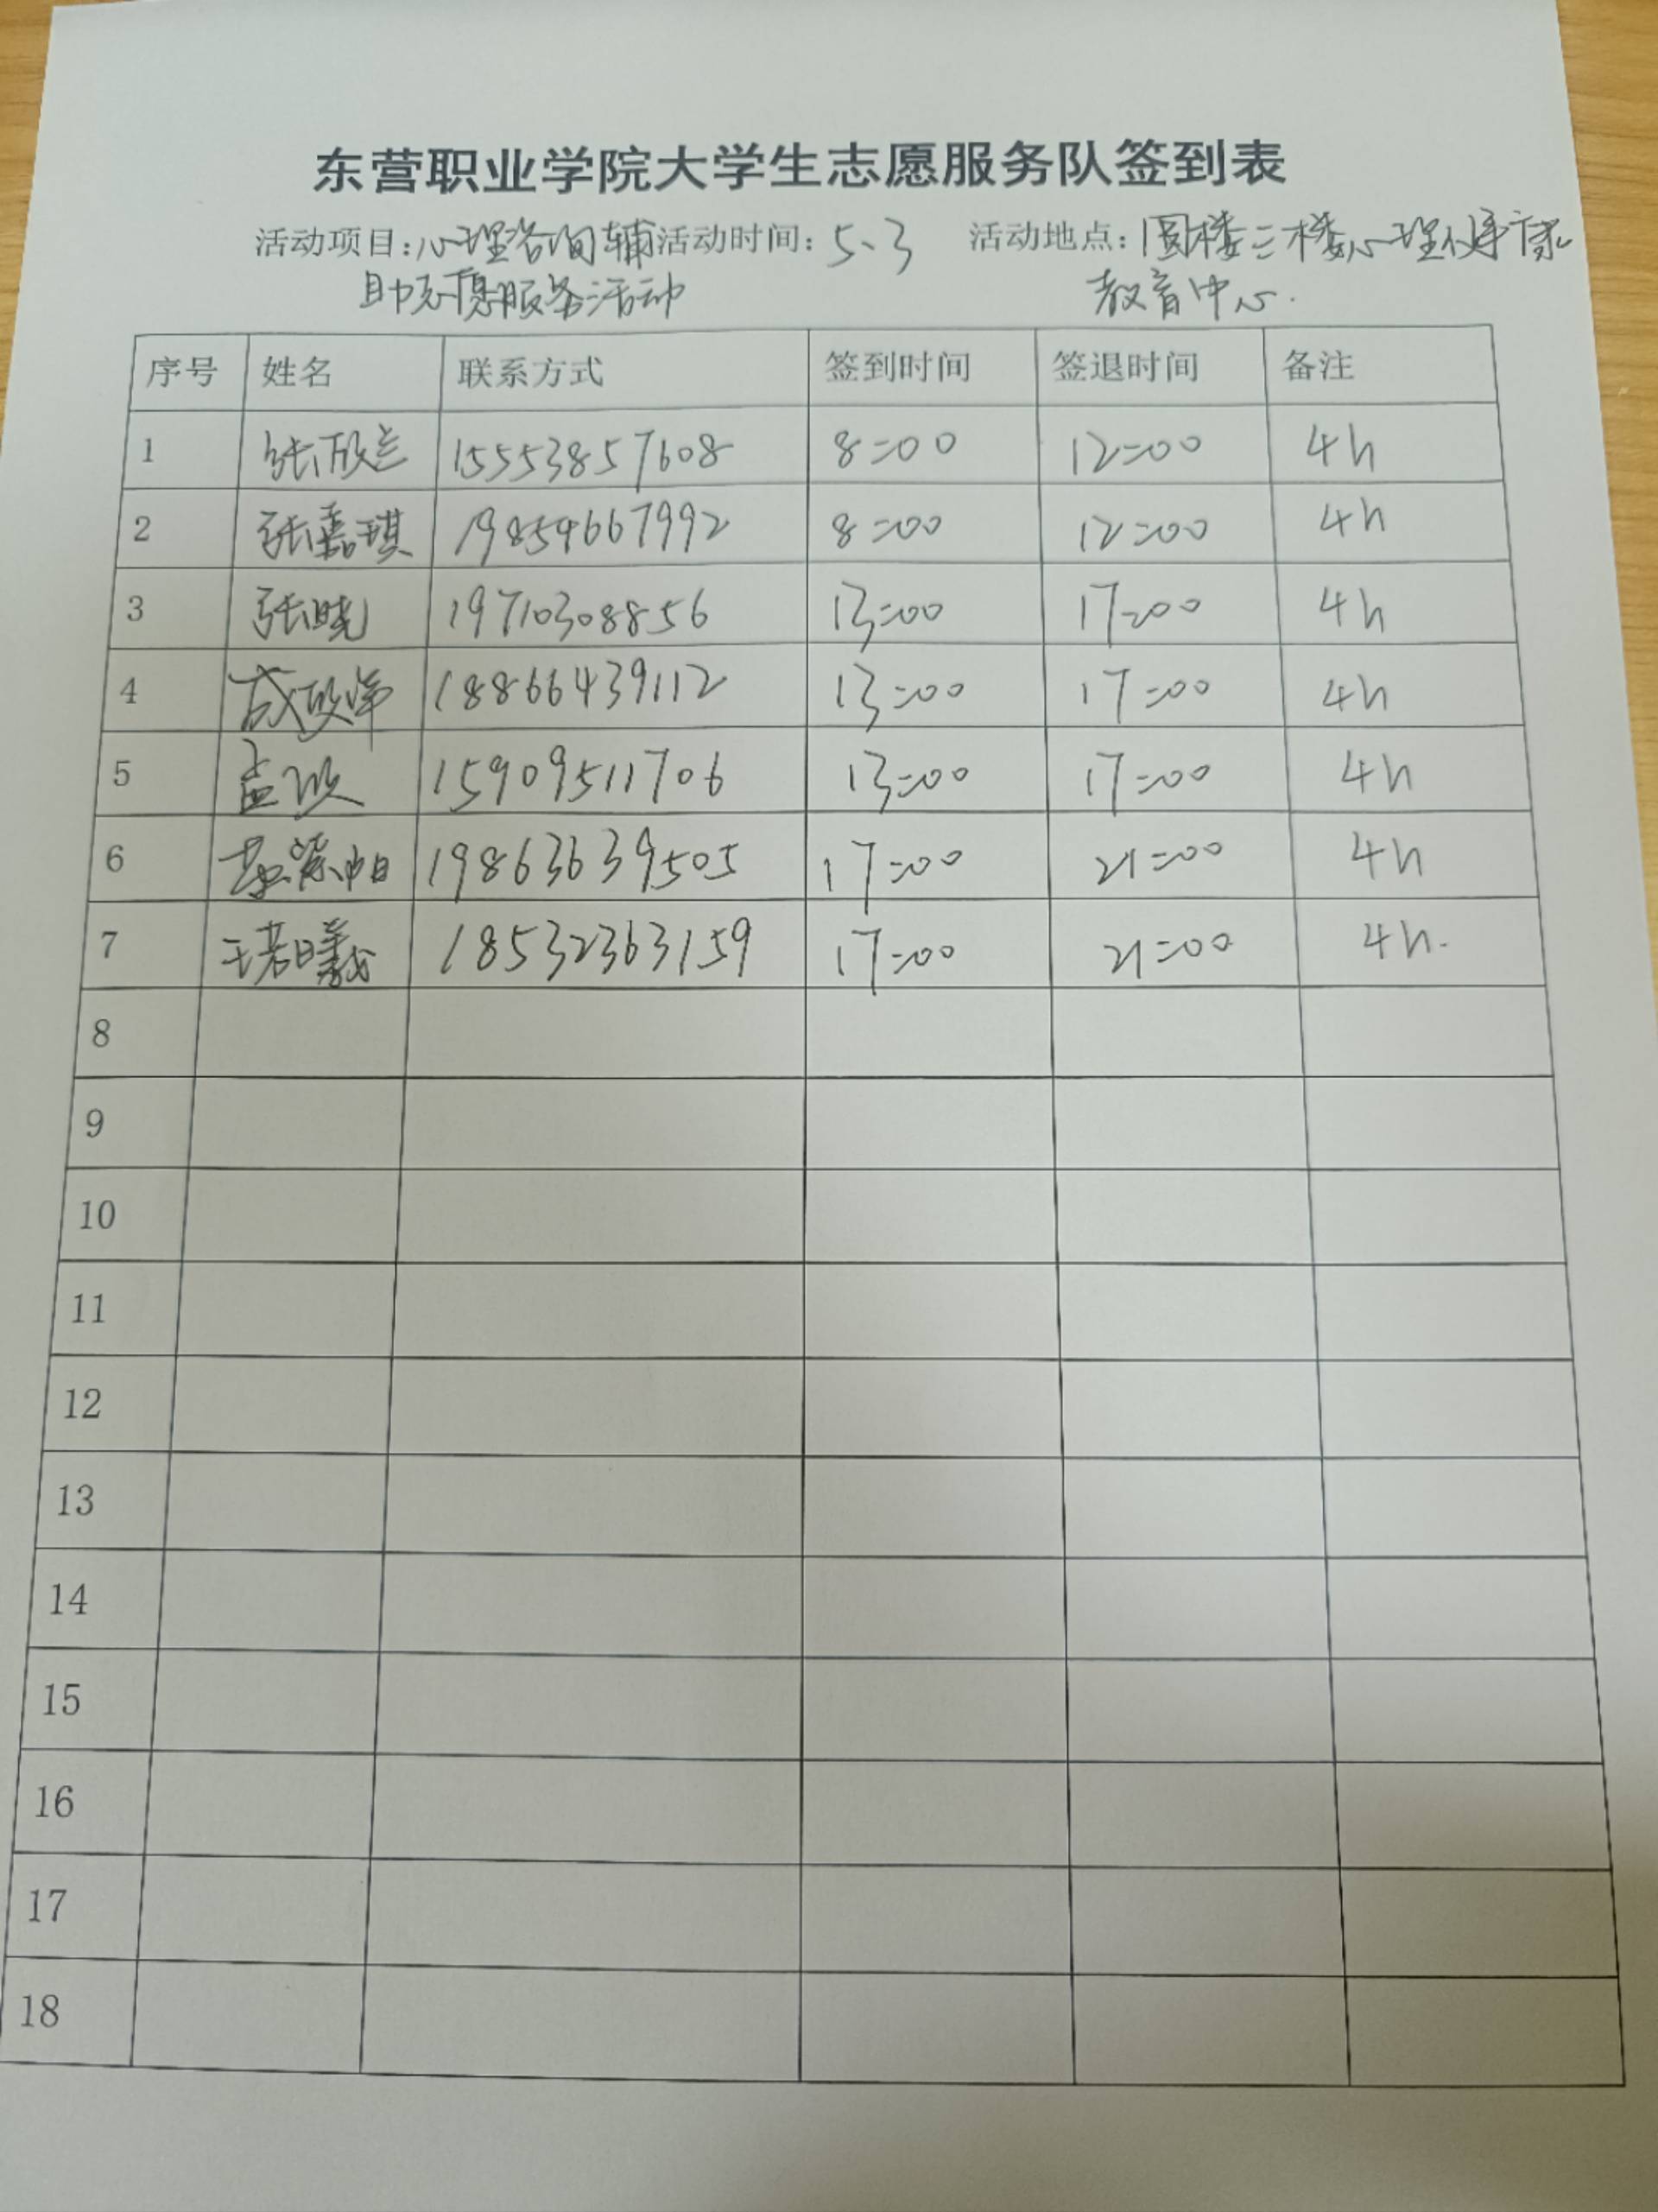 东营职业学院大学生志愿服务队签到表
活动项目:心理咨询辅 活动时间: 5、3 活动地点: 圆楼三楼心理健康
助志愿服务活动 教育中心.
序号 姓名 联系方式 签到时间 签退时间 备注
1 张欣兰 15553857608 8:00 12:00 4h
2 张嘉琪 19859667992 8:00 12:00 4h
3 张晓 19710308856 13:00 17:00 4h
4 18866439112 13:00 17:00 4h
5 15909511706 13:00 17:00 4h
6 19863639505 17:00 21:00 4h
7 王若曦 18532363159 17:00 21:00 4h.
8
9
10
11
12
13
14
15
16
17
18